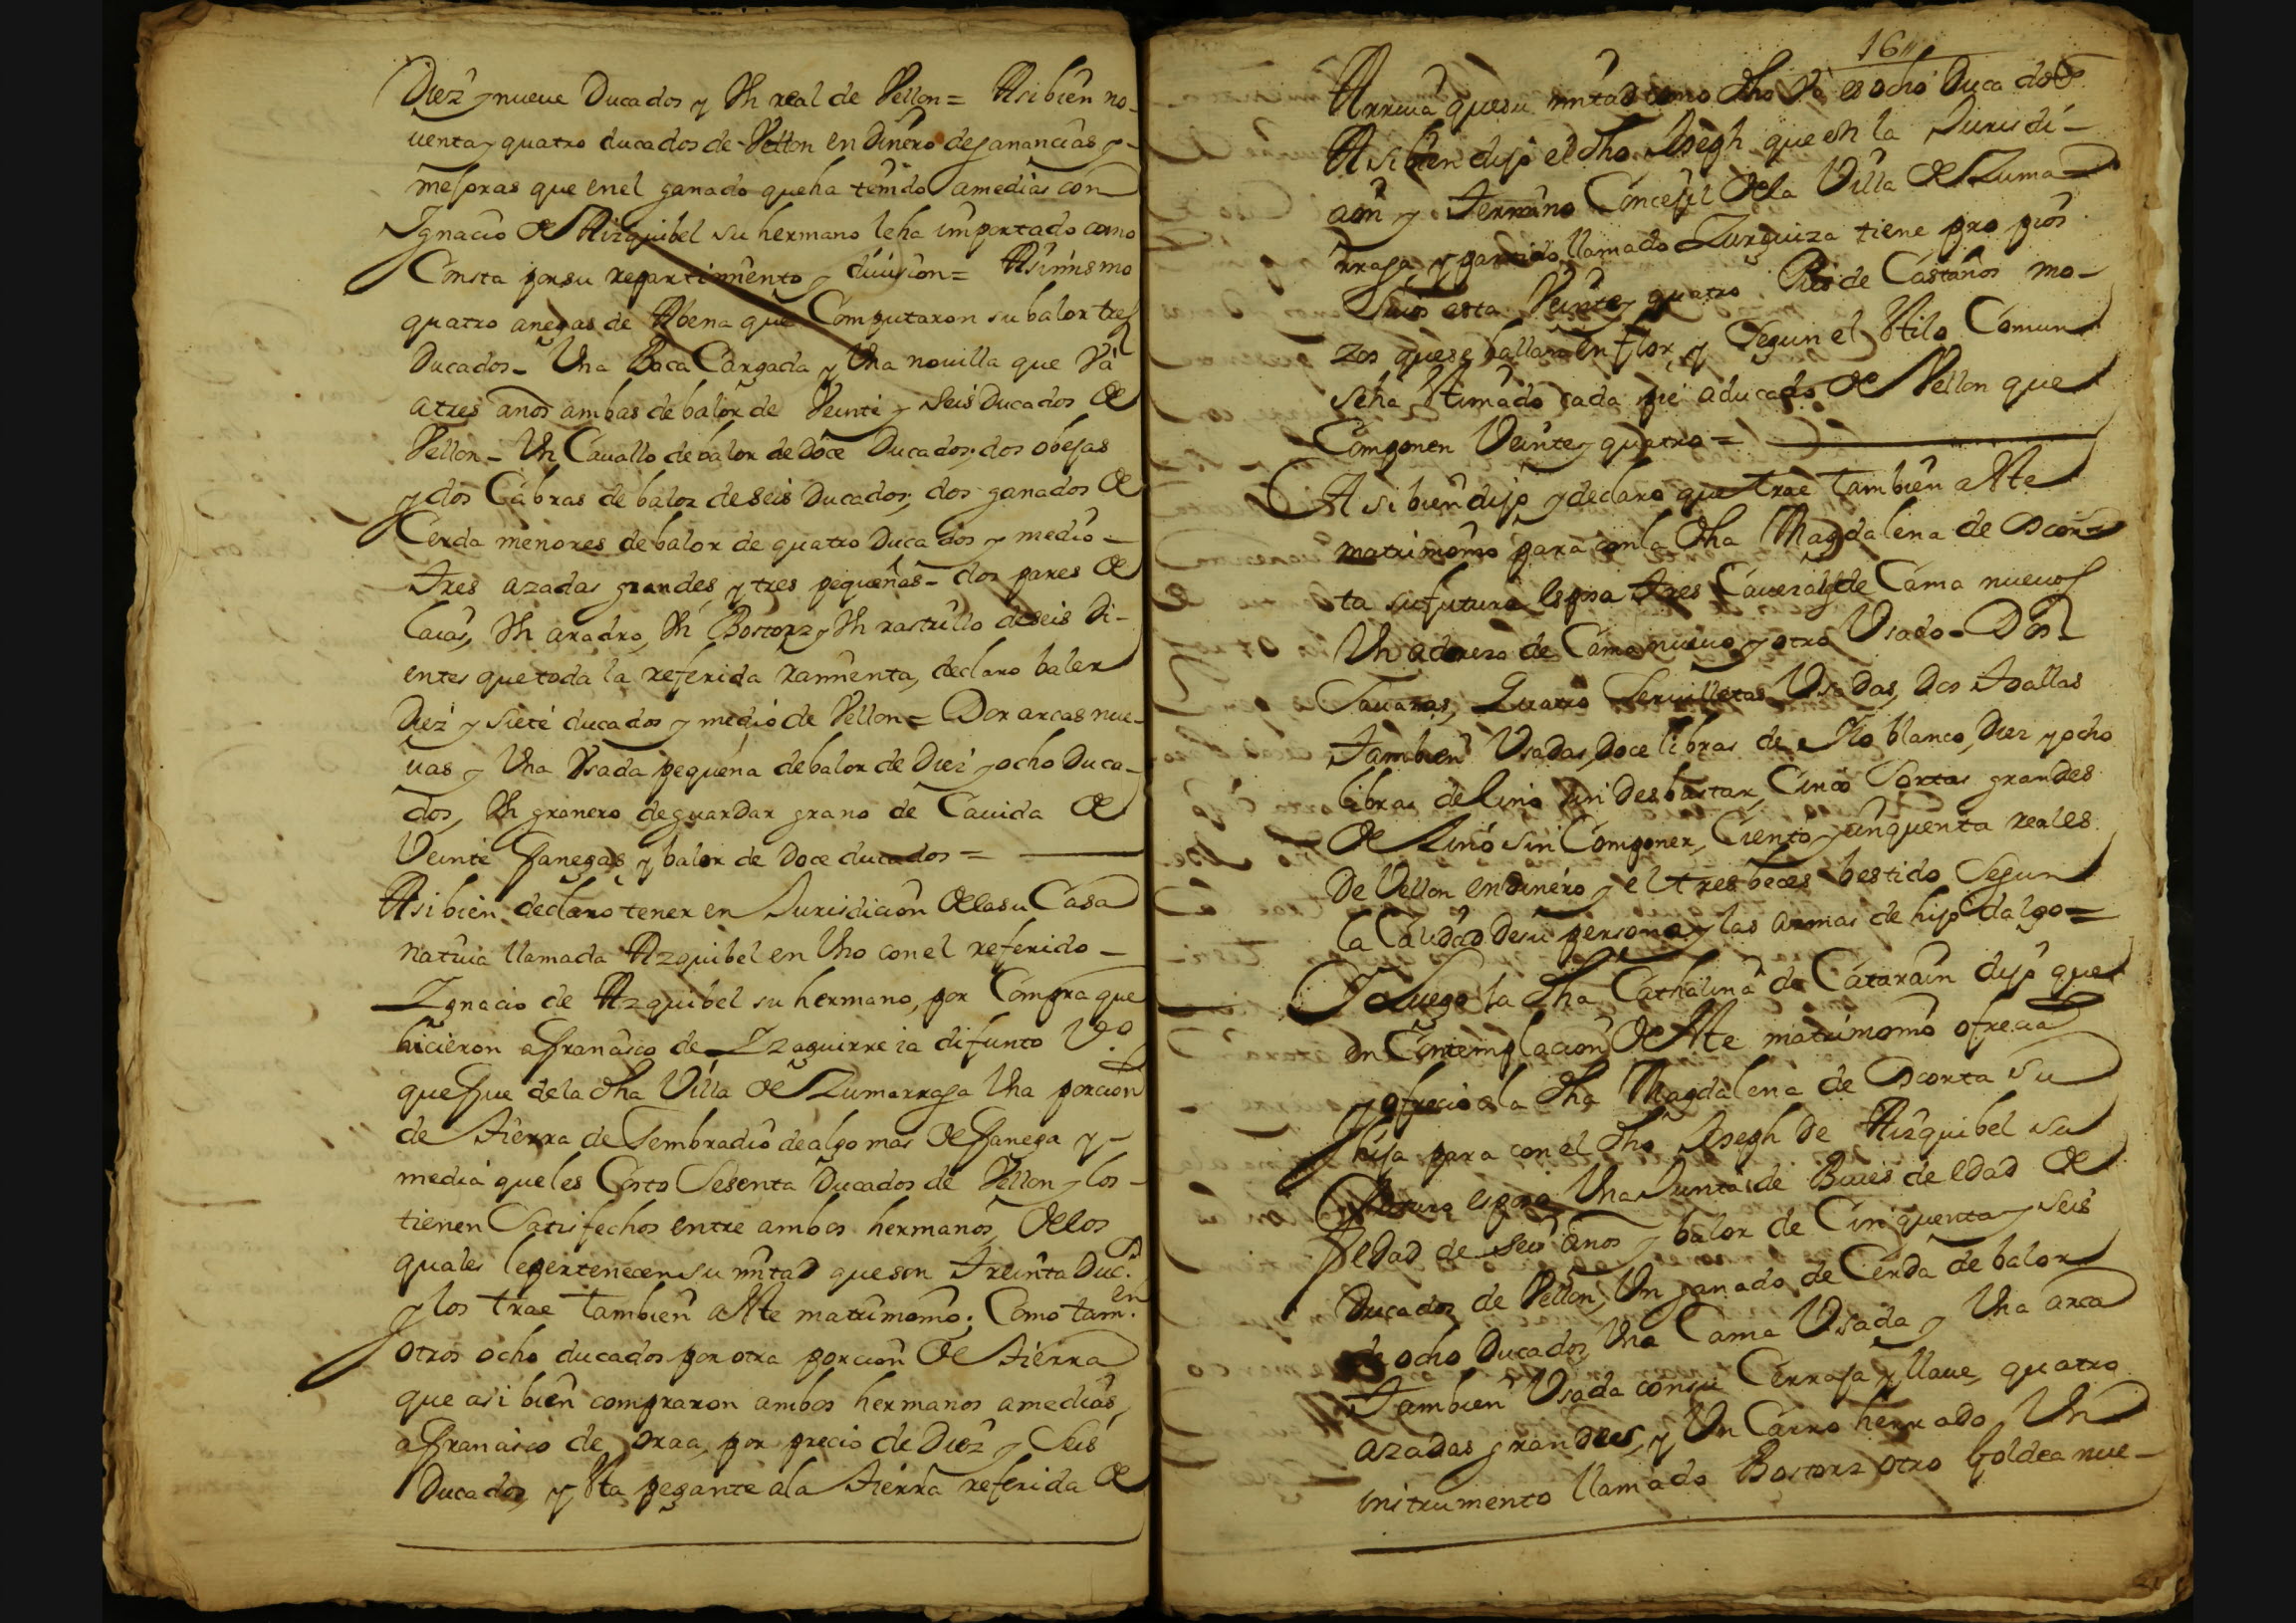 Diez y nueve Ducados y Vn real de Vellon = Asibien no-
uenta y quatro ducados de Vellon en dinero de ganancias y
mejoras que en el ganado que ha tenido amedias con
Ignacio de Aizquibel su hermano le ha importado como
Consta por su repartimiento y diuision = Asimismo
quatro anegas de Abena que Computaron su balor tres
Ducados - Vna Baca Cargada y Vna nouilla que Va
atres años ambas de balor de Veinte y seis Ducados de
Vellon - Vn Cauallo de balor de Doce Ducados, dos obejas
y dos Cabras de balor de seis Ducados, dos ganados de
Cerda menores de balor de quatro Ducados y medio -
Tres azadas grandes y tres pequeñas - dos pares de
laias, Vn aradro, Vn Bostorz y Vn rastrillo de seis Di-
entes que toda la referida ramienta, declaro baler
Diez y siete ducados y medio de Vellon = Dos arcas nue-
uas y Vna Vsada pequeña de balor de Diez y ocho Duca-
dos, Vn granero de guardar grano de Cauida de
Veinte fanegas y balor de Doce ducados =
Asi bien declaro tener en Jurisdicion de la su Casa
natiua llamada Azquibel en Vno con el referido -
Ignacio de Azquibel su hermano, por Compra que
hicieron a francisco de Izaguirre ia difunto Vº
que fue de la dha Villa de Zumarraga Vna porcion
de tierra de Sembradio de algo mas de fanega y
media que les Costo Sesenta Ducados de Vellon y los
tienen Satisfechos entre ambos hermanos, de los
quales le pertenecen su mitad que son Treinta Ducs.
y los trae tambien a Este matrimonio; Como tam.en
otros ocho ducados por otra porcion de tierra
que asi bien compraron ambos hermanos amedias,
a francisco de oraa, por precio de Diez y Seis
Ducados, y Esta pegante ala tierra referida de
16
Arriua que su mitad como dho Va es ocho Ducados
Asibien dijo el dho Joseph que en la Jurisdi-
cion y termino Concejil de la Villa de Zuma
rraga y partido llamado Zurquiza tiene propios
Suios esta Veinte y quatro Pies de Castaños mo-
zos que se hallan en flor, y Segun el Estilo Comun
se ha Estimado cada pie a ducado de Vellon que
Componen Veinte y quatro =
Asi bien dijo y declaro que trae tambien a Este
matrimonio para con la dha Magdalena de Ascor
ta su futura esposa tres Caueçales de Cama nueuos
Vn aderezo de Cama nueuo y otro Vsado - Dos
Sauanas, Quatro Seruilletas Vsadas, Dos Toallas
tambien Vsadas, Doce libras de Ilo blanco, Diez y ocho
libras de lino sin desbastar, Cinco Sortas grandes
de Lino sin Componer, Ciento y cinquenta reales
De Vellon en dinero, y el tres beces bestido Segun
la Calidad de su persona y las armas de hijo dalgo =
Y Luego la dha Cathalina de Catarain dijo que
en Contemplacion de Este matrimonio ofrecia
y ofrecio a la dha Magdalena de Ascorta su
hija para con el dho Joseph de Aizquibel su
futuro esposo Vna Junta de Bueis de edad de
edad de seis años y balor de Cinquenta y seis
Ducados de Vellon, Vn ganado de Cerda de balor
de ocho Ducados, Vna Cama Vsada y Vna arca
tambien Vsada con su Cerraja y llaue, quatro
azadas grandes, y Vn Carro herrado, Vn
instrumento llamado Bostorz otro Goldea nue-